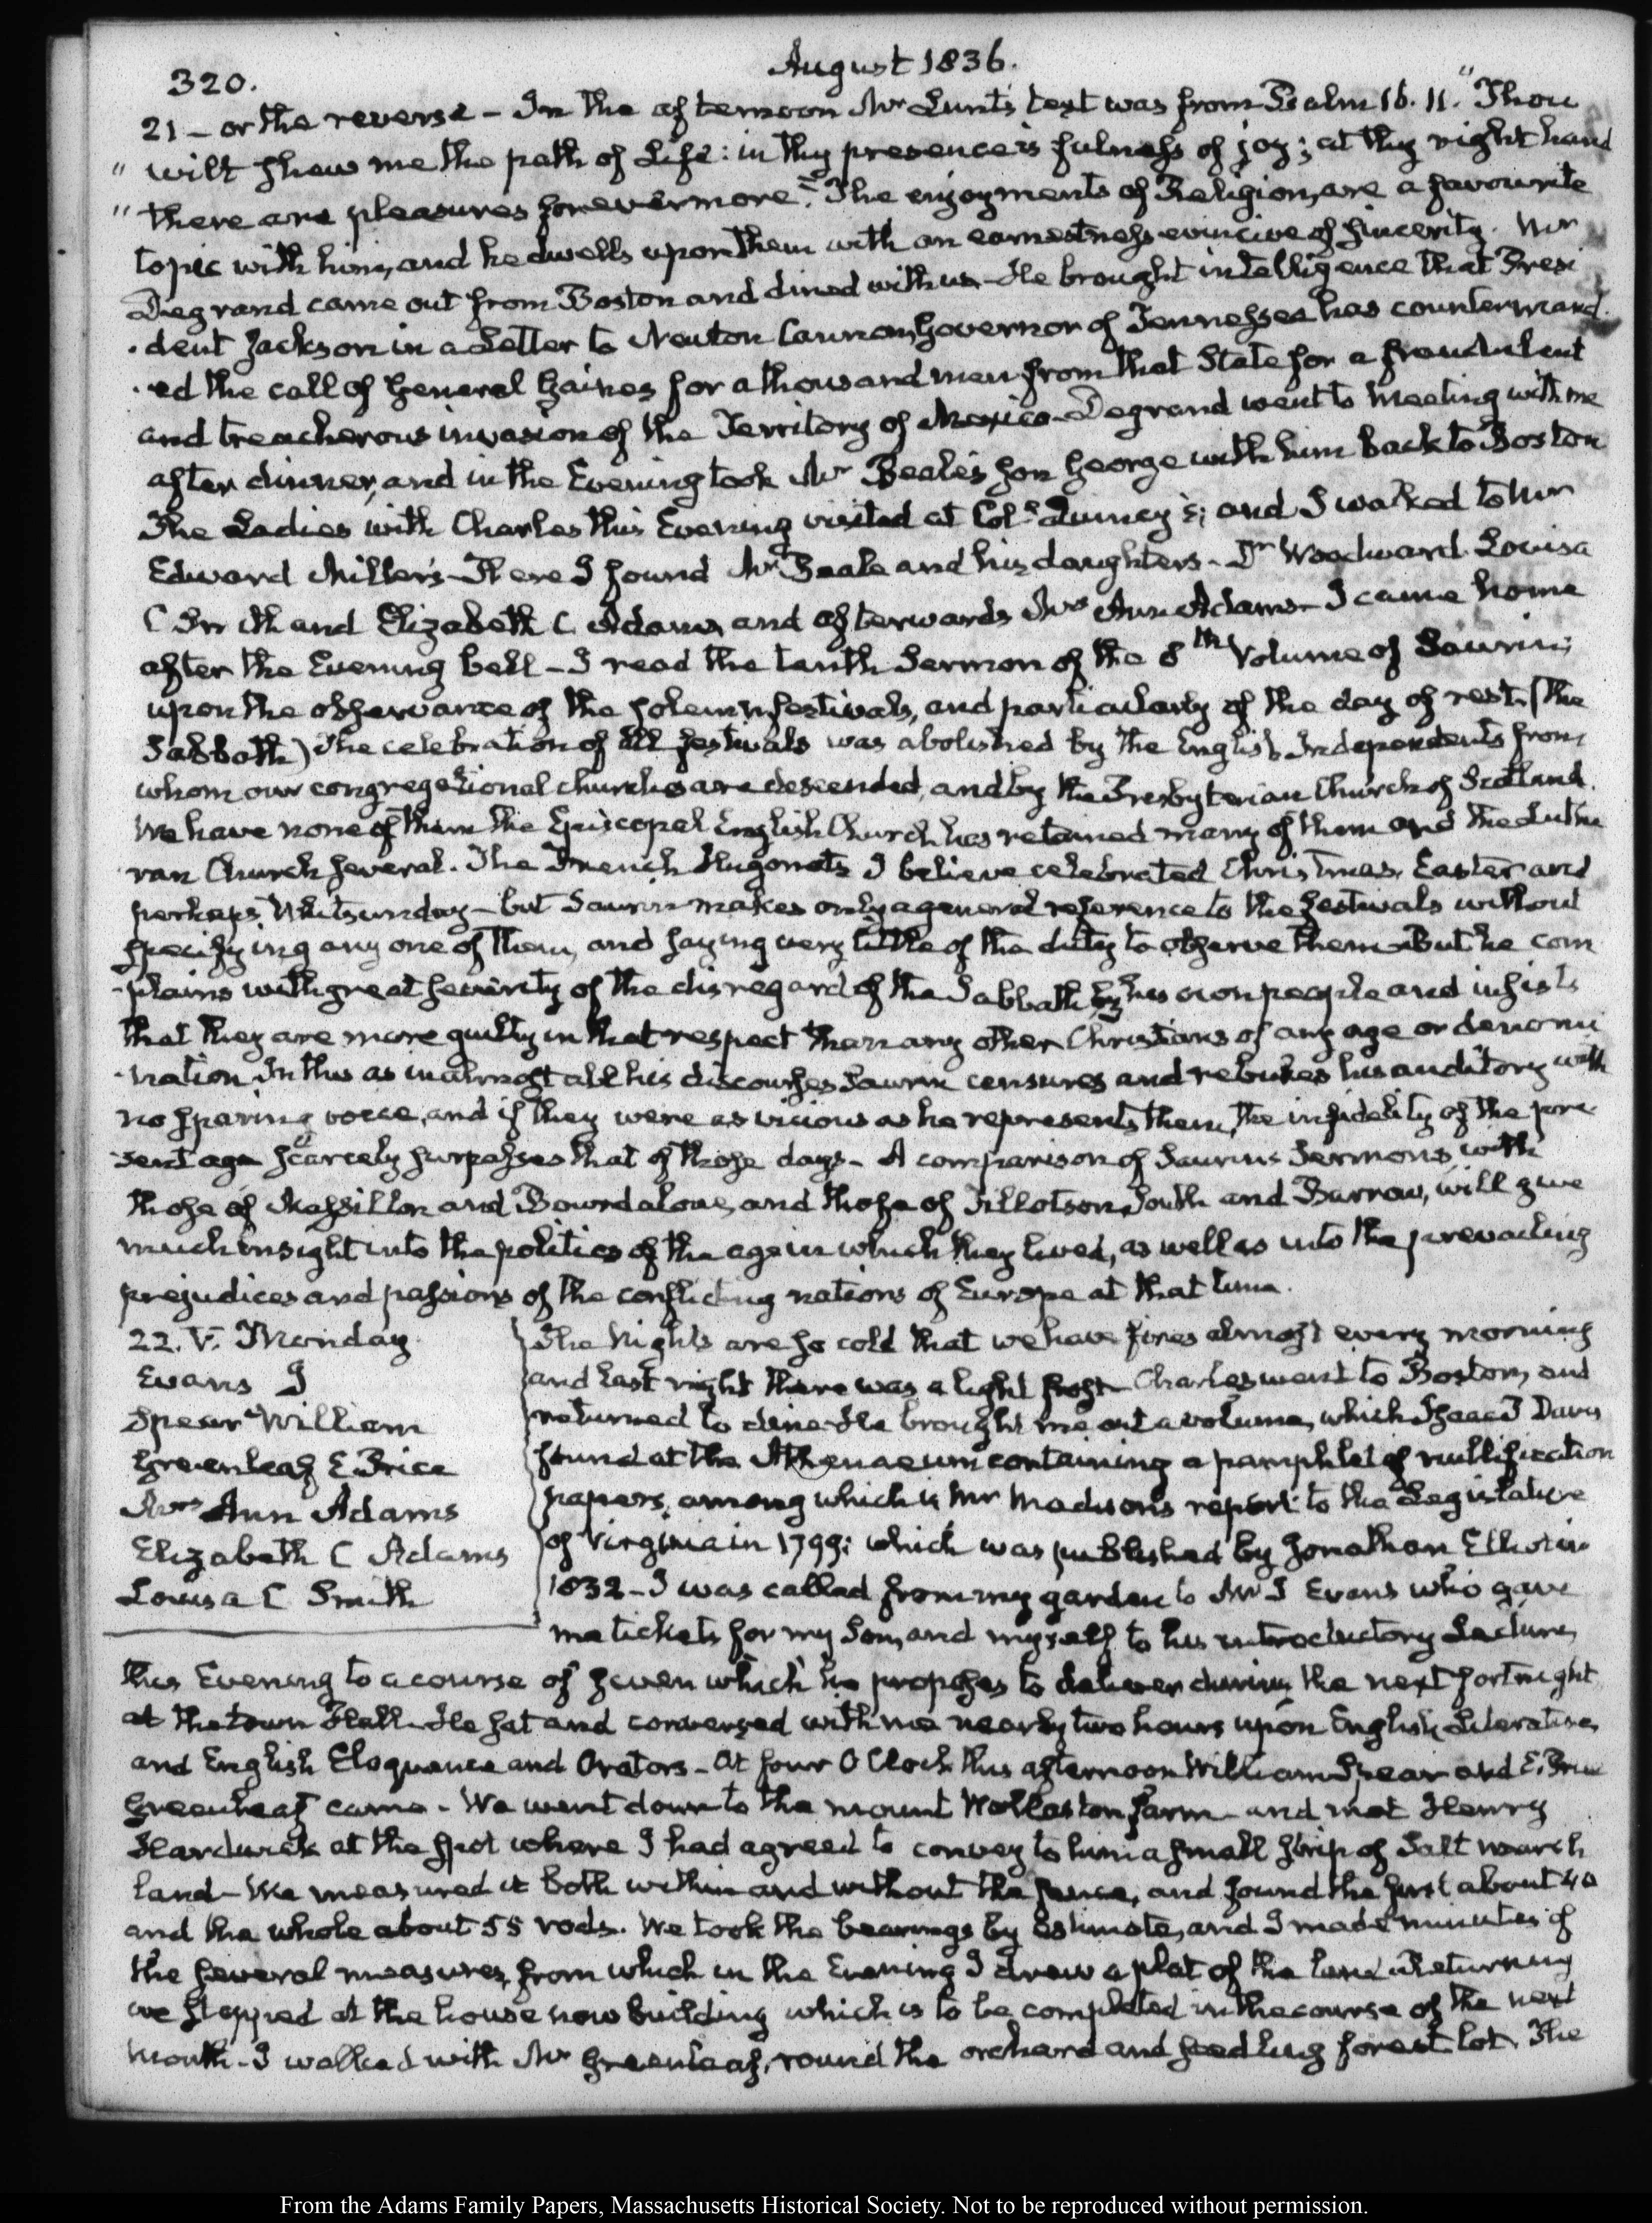 320.
August 1836.
21 – or the reverse – In the afternoon Mr Lunt's text was from Psalm 16. 11. "Thou
" wilt shew me the path of Life: in thy presence is fulness of joy; at thy right hand
" there are pleasures forevermore." The enjoyments of Religion, are a favourite
topic with him, and he dwells upon them with an earnestness evincive of sincerity. Mr
Degrand came out from Boston and dined with us – He brought intelligence that Presi
-dent Jackson in a Letter to Newton Cannon, Governor of Tennessee has countermand
-ed the call of General Gaines for a thousand men from that State for a fraudulent
and treacherous invasion of the Territory of Mexico – Degrand went to Meeting with me
after dinner, and in the Evening took Mr Beale's son George with him back to Boston
The Ladies with Charles this Evening visited at Coll Quincy's; and I walked to Mr
Edward Miller's – There I found Mr Beale and his daughters – Dr Woodward. Louisa
C Smith and Elizabeth C Adams, and afterwards Mrs Ann Adams – I came home
after the Evening bell – I read the tenth Sermon of the 8th Volume of Saurin;
upon the observance of the solemn festivals, and particularly of the day of rest. (the
Sabbath) The celebration of all festivals was abolished by the English Independents from
whom our congregational churches are descended, and by the Presbyterian Church of Scotland.
We have none of them. The Episcopal English Church has retained many of them and the Luthe
ran Church several. The French Hugonots I believe celebrated Christmas, Easter and
perhaps Whitsunday – but Saurin makes only a general reference to the festivals without
specifying any one of them, and saying very little of the duty to observe them – But he com
-plains with great severity of the disregard of the Sabbath by his own people and insists
that they are more guilty in that respect than any other Christians of any age or denomi
-nation. In this as in almost all his discourses Saurin censures and rebukes his auditory with
no sparing voice, and if they were as vicious as he represents them, the infidelity of the pre
-sent age scarcely surpasses that of those days – A comparison of Saurin's Sermons with
those of Massillon and Bourdaloue, and those of Tillotson, South and Barrow, will give
much insight into the politics of the age in which they lived, as well as into the prevailing
prejudices and passions of the conflicting nations of Europe at that time.
22. V. Monday
Evans J
Spear William
Greenleaf E Price
Mrs Ann Adams
Elizabeth C Adams
Louisa C Smith
The Nights are so cold that we have fires almost every morning
and last night there was a light frost – Charles went to Boston, and
returned to dine – He brought me out a volume, which Isaac P Davis
found at the Athenaeum containing a pamphlet of nullification
papers, among which is Mr Madison's report to the Legislature
of Virginia in 1799; which was published by Jonathan Elliot in
1832 – I was called from my garden to Mr J Evans who gave
me tickets for my Son, and myself to his introductory Lecture,
this Evening to a course of seven which he proposes to deliver during the next fortnight
at the town Hall – He sat and conversed with me nearly two hours upon English Literature,
and English Eloquence and Orators – At four O'Clock this afternoon William Spear and E. Price
Greenleaf came – We went down to the mount Wollaston farm – and met Henry
Hardwick at the spot where I had agreed to convey to him a small strip of Salt marsh
land – We measured it both within and without the fence, and found the first about 40
and the whole about 55 rods. We took the bearings by estimate, and I made minutes of
the several measures, from which in the Evening I drew a plat of the land. Returning
we stopped at the house now building which is to be completed in the course of the next
month – I walked with Mr Greenleaf, round the orchard and seedling forest lot. The
From the Adams Family Papers, Massachusetts Historical Society. Not to be reproduced without permission.